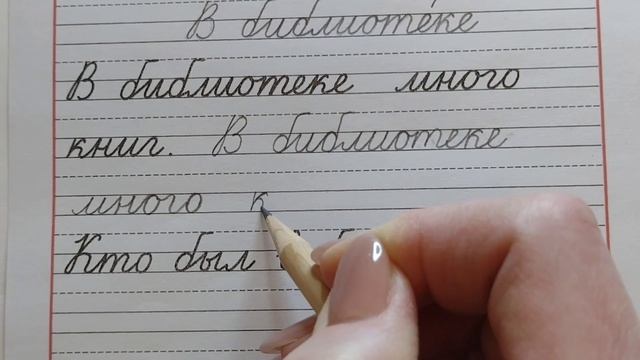 В библиотеке
В библиотеке много
книг. В библиотеке
много к
Кто был в